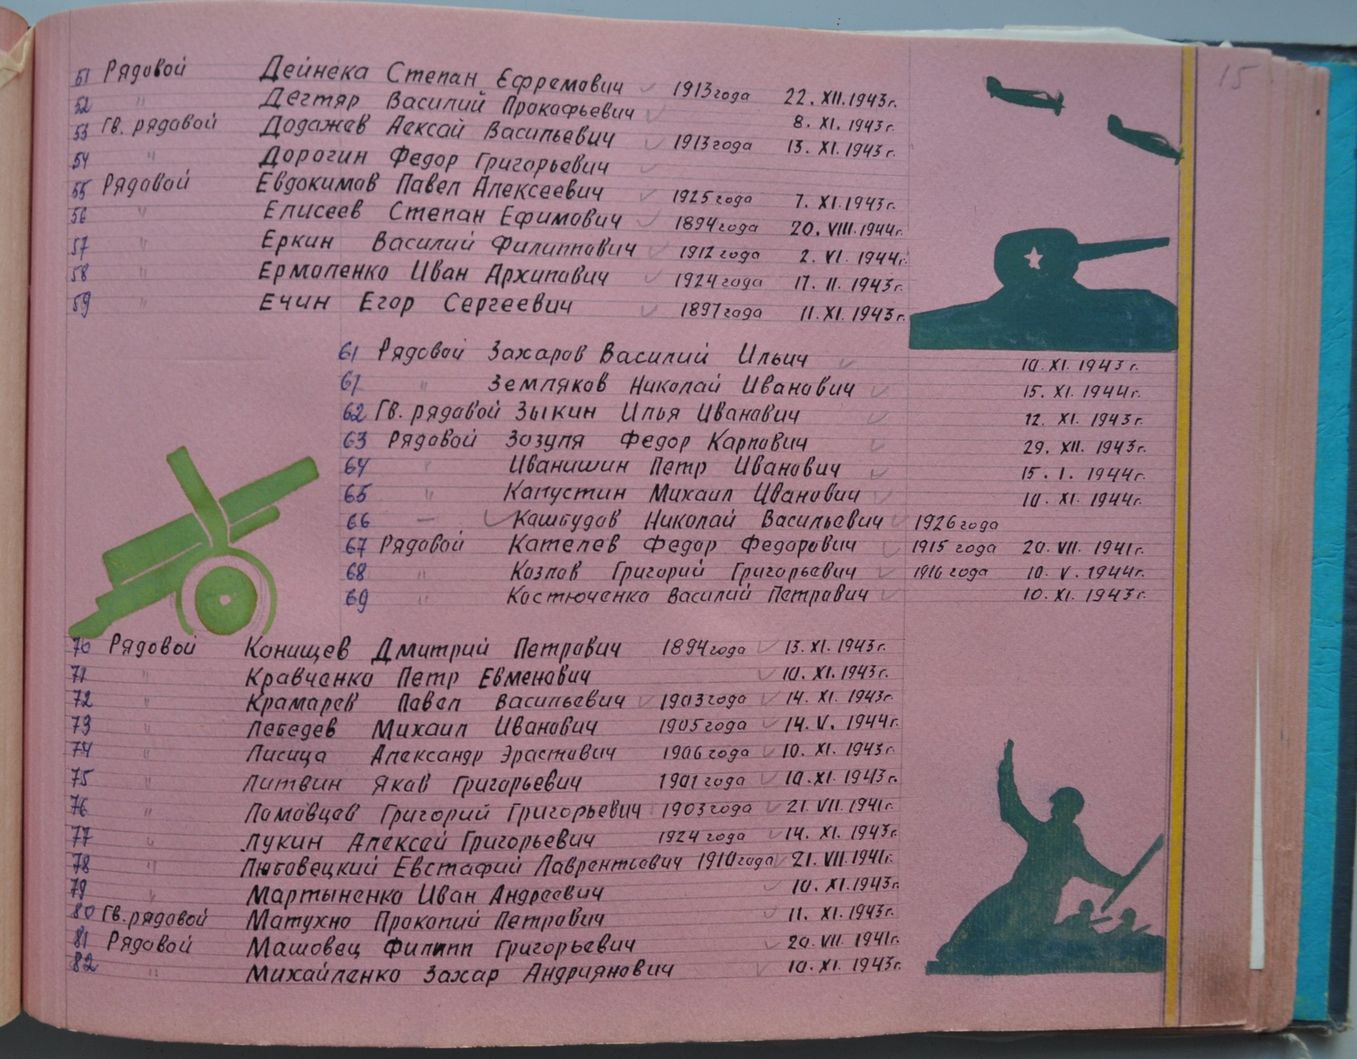 15
51 Рядовой Дейнека Степан Ефремович 1913 года 22. XII. 1943 г.
52 " Дегтяр Василий Прокофьевич 8. XI. 1943 г.
53 Гв. рядовой Додажев Аексай Васильевич 1913 года 13. XI. 1943 г.
54 " Дорогин Федор Григорьевич
55 Рядовой Евдокимов Павел Алексеевич 1925 года 7. XI. 1943 г.
56 " Елисеев Степан Ефимович 1894 года 20. VIII. 1944 г.
57 " Еркин Василий Филиппович 1912 года 2. VI. 1944 г.
58 " Ермоленко Иван Архипович 1924 года 17. II. 1943 г.
59 " Ечин Егор Сергеевич 1897 года 11. XI. 1943 г.
61 Рядовой Захаров Василий Ильич 10. XI. 1943 г.
61 " Земляков Николай Иванович 15. XI. 1944 г.
62 Гв. рядовой Зыкин Илья Иванович 12. XI. 1943 г.
63 Рядовой Зозуля Федор Карпович 29. XII. 1943 г.
64 " Иванишин Петр Иванович 15. I. 1944 г.
65 " Капустин Михаил Иванович 10. XI. 1944 г.
66 — Кашбудов Николай Васильевич 1926 года
67 Рядовой Кателев Федор Федорович 1915 года 20. VII. 1941 г.
68 " Козлов Григорий Григорьевич 1916 года 10. V. 1944 г.
69 " Костюченко Василий Петрович 10. XI. 1943 г.
70 Рядовой Конищев Дмитрий Петрович 1894 года 13. XI. 1943 г.
71 " Кравченко Петр Евменович 10. XI. 1943 г.
72 " Крамарев Павел Васильевич 1903 года 14. XI. 1943 г.
73 " Лебедев Михаил Иванович 1905 года 14. V. 1944 г.
74 " Лисица Александр Эрастович 1906 года 10. XI. 1943 г.
75 " Литвин Яков Григорьевич 1901 года 10. XI. 1943 г.
76 " Ломовцев Григорий Григорьевич 1903 года 21. VII. 1941 г.
77 " Лукин Алексей Григорьевич 1924 года 14. XI. 1943 г.
78 " Любовецкий Евстафий Лаврентьевич 1910 года 21. VII. 1941 г.
79 " Мартыненко Иван Андреевич 10. XI. 1943 г.
80 Гв. рядовой Матухно Прокопий Петрович 11. XI. 1943 г.
81 Рядовой Машовец Филипп Григорьевич 20. VII. 1941 г.
82 " Михайленко Захар Андриянович 10. XI. 1943 г.